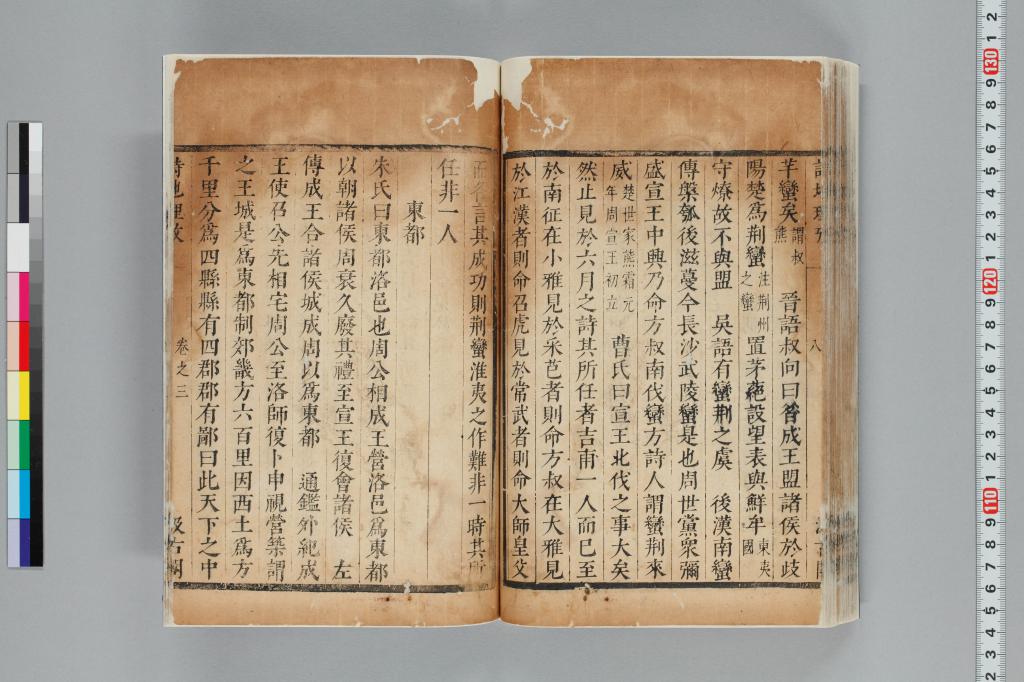 詩地理攷
八
汲古閣
芉蠻矣謂叔熊　晉語叔向曰昝成王盟諸侯於歧
陽楚為荆蠻注荆州之蠻置茅蕝設望表與鮮牟東夷國
守燎故不與盟　吳語有蠻荆之虞　後漢南蠻
傳槃瓠後滋蔓今長沙武陵蠻是也周世黨衆彌
盛宣王中興乃命方叔南伐蠻方詩人謂蠻荆來
威楚世家熊霜元年周宣王初立　曹氏曰宣王北伐之事大矣
然止見於六月之詩其所任者吉甫一人而已至
於南征在小雅見於采芑者則命方叔在大雅見
於江漢者則命召虎見於常武者則命大師皇父
其成功則荆蠻淮夷之作難非一時其所
任非一人
東都
朱氏曰東都洛邑也周公相成王營洛邑為東都
以朝諸侯周衰久廢其禮至宣王復會諸侯　左
傳成王合諸侯城成周以為東都　通鑑外紀成
王使召公先相宅周公至洛師復卜申視營築謂
之王城是為東都制郊畿方六百里因西土為方
千里分為四縣縣有四郡郡有鄙曰此天下之中
詩地理攷
卷之三
汲古閣